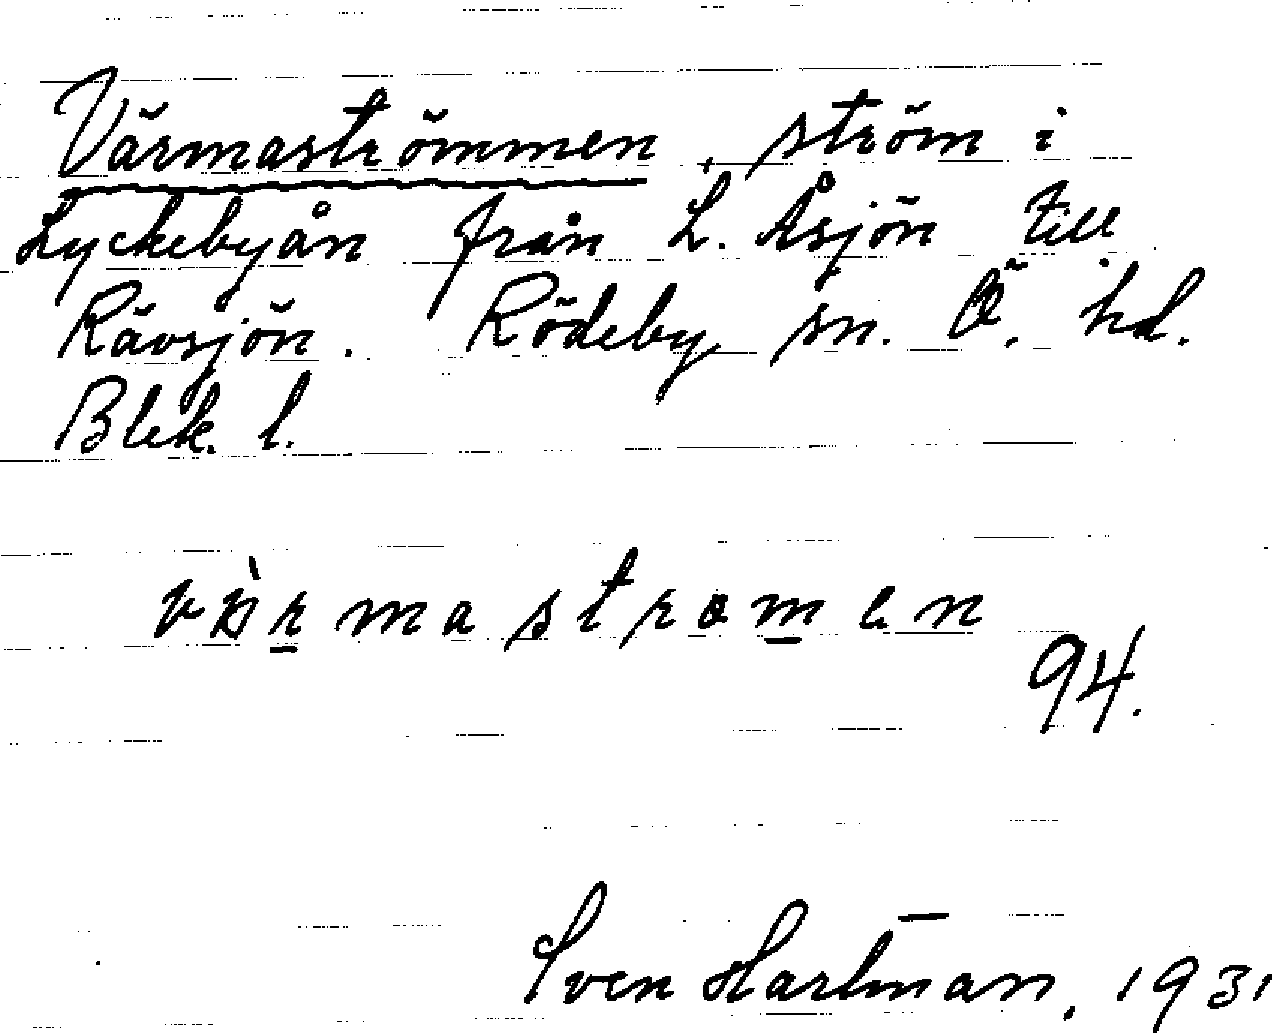 Värmaströmmen, ström i
Lyckebyån från L. Åsjön till
Rävsjön. Rödeby sn. Ö. hd.
Blek. l.
94.
Sven Hartman, 1931